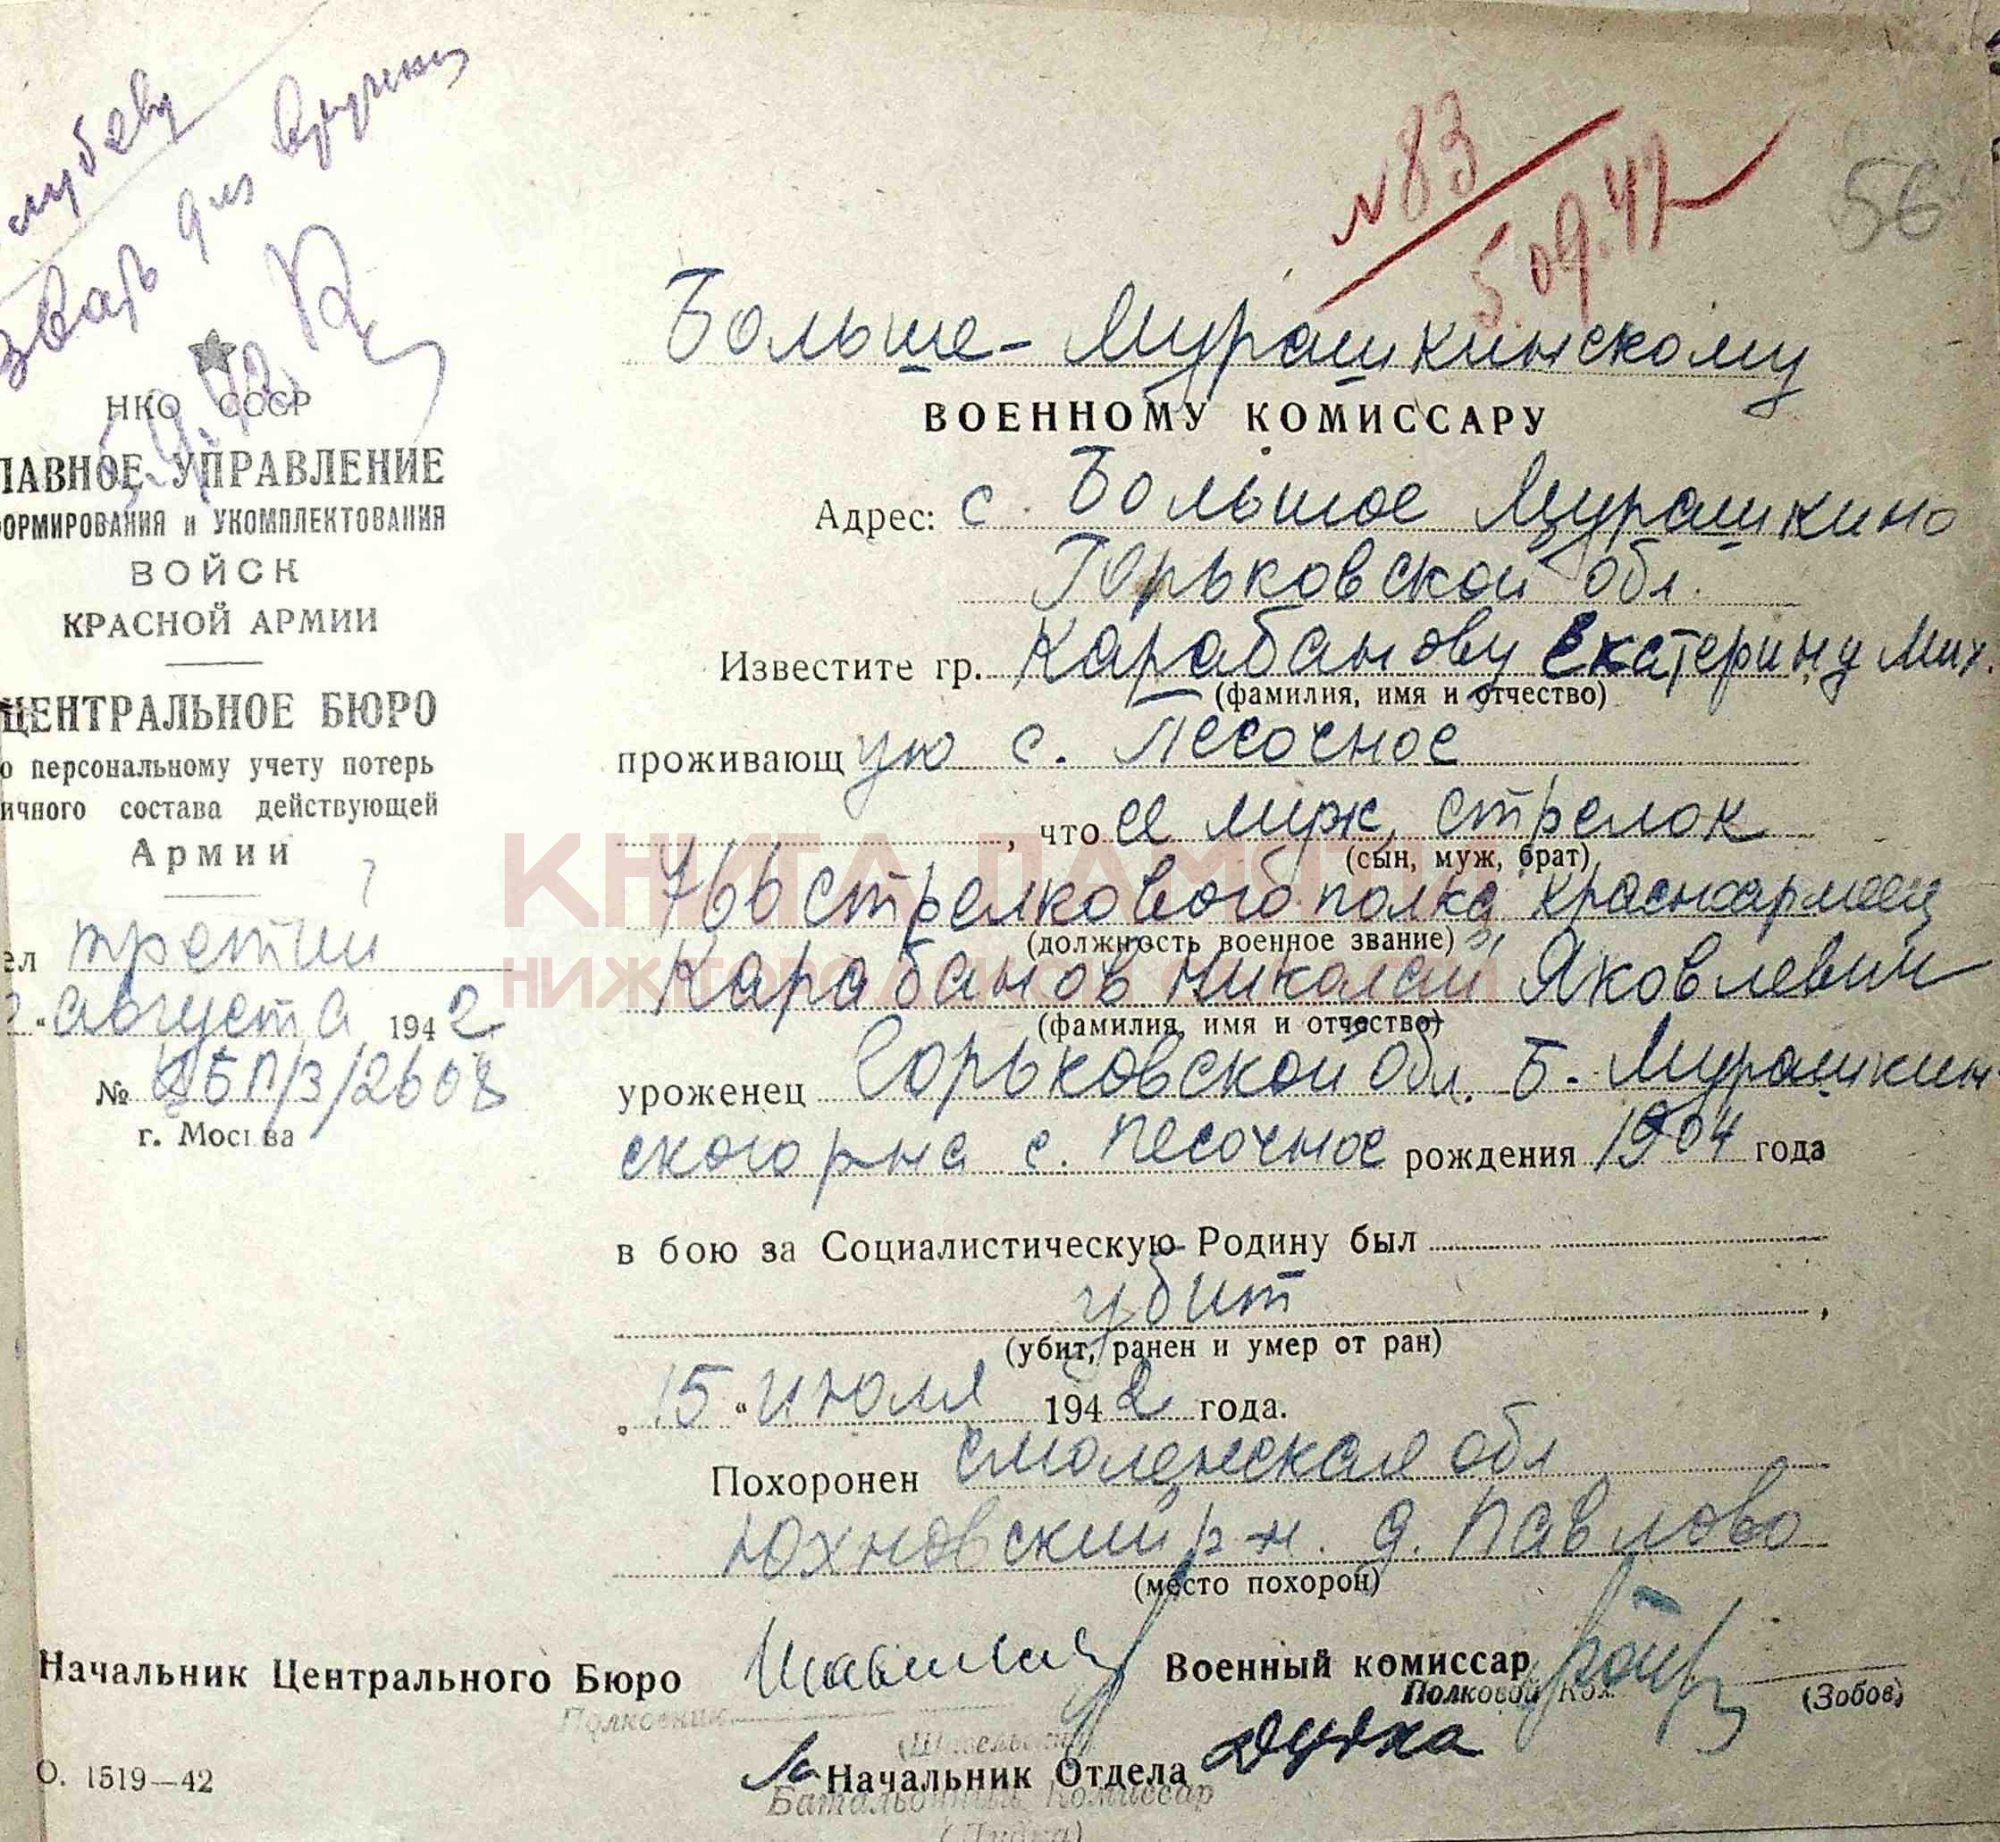 для
№83
5.09.42
56
Больше-Мурашкинскому
ВОЕННОМУ КОМИССАРУ
Адрес: с. Большое Мурашкино
Горьковской обл.
Известите гр. Карабанову Екатерину Мих.
(фамилия, имя и отчество)
проживающ ую с. Песочное
, что ее муж, стрелок
(сын, муж, брат)
766 стрелкового полка, красноармеец
(должность военное звание)
Карабанов Николай Яковлевич
(фамилия, имя и отчество)
уроженец Горьковской обл. Б. Мурашкин-
ского р-на с. Песочное рождения 1904 года
в бою за Социалистическую Родину был
убит,
(убит, ранен и умер от ран)
„15“ июля 1942 года.
Похоронен Смоленская обл
Юхновский р-н. д. Павлово
(место похорон)
НКО СССР
ЛАВНОЕ УПРАВЛЕНИЕ
ОРМИРОВАНИЯ и УКОМПЛЕКТОВАНИЯ
ВОЙСК
КРАСНОЙ АРМИИ
ЦЕНТРАЛЬНОЕ БЮРО
о персональному учету потерь
ичного состава действующей
Армии
ел третий
“ августа 1942
№ ЦБП/3/2608
г. Москва
КНИГА ПАМЯТИ
НИЖЕГОРОДСКОЙ ОБЛАСТИ
Начальник Центрального Бюро
Полковник
Военный комиссар
Полковой Ком
(Зобов)
Начальник Отдела Дудка
Батальонный Комиссар
(Дудка)
О. 1519—42